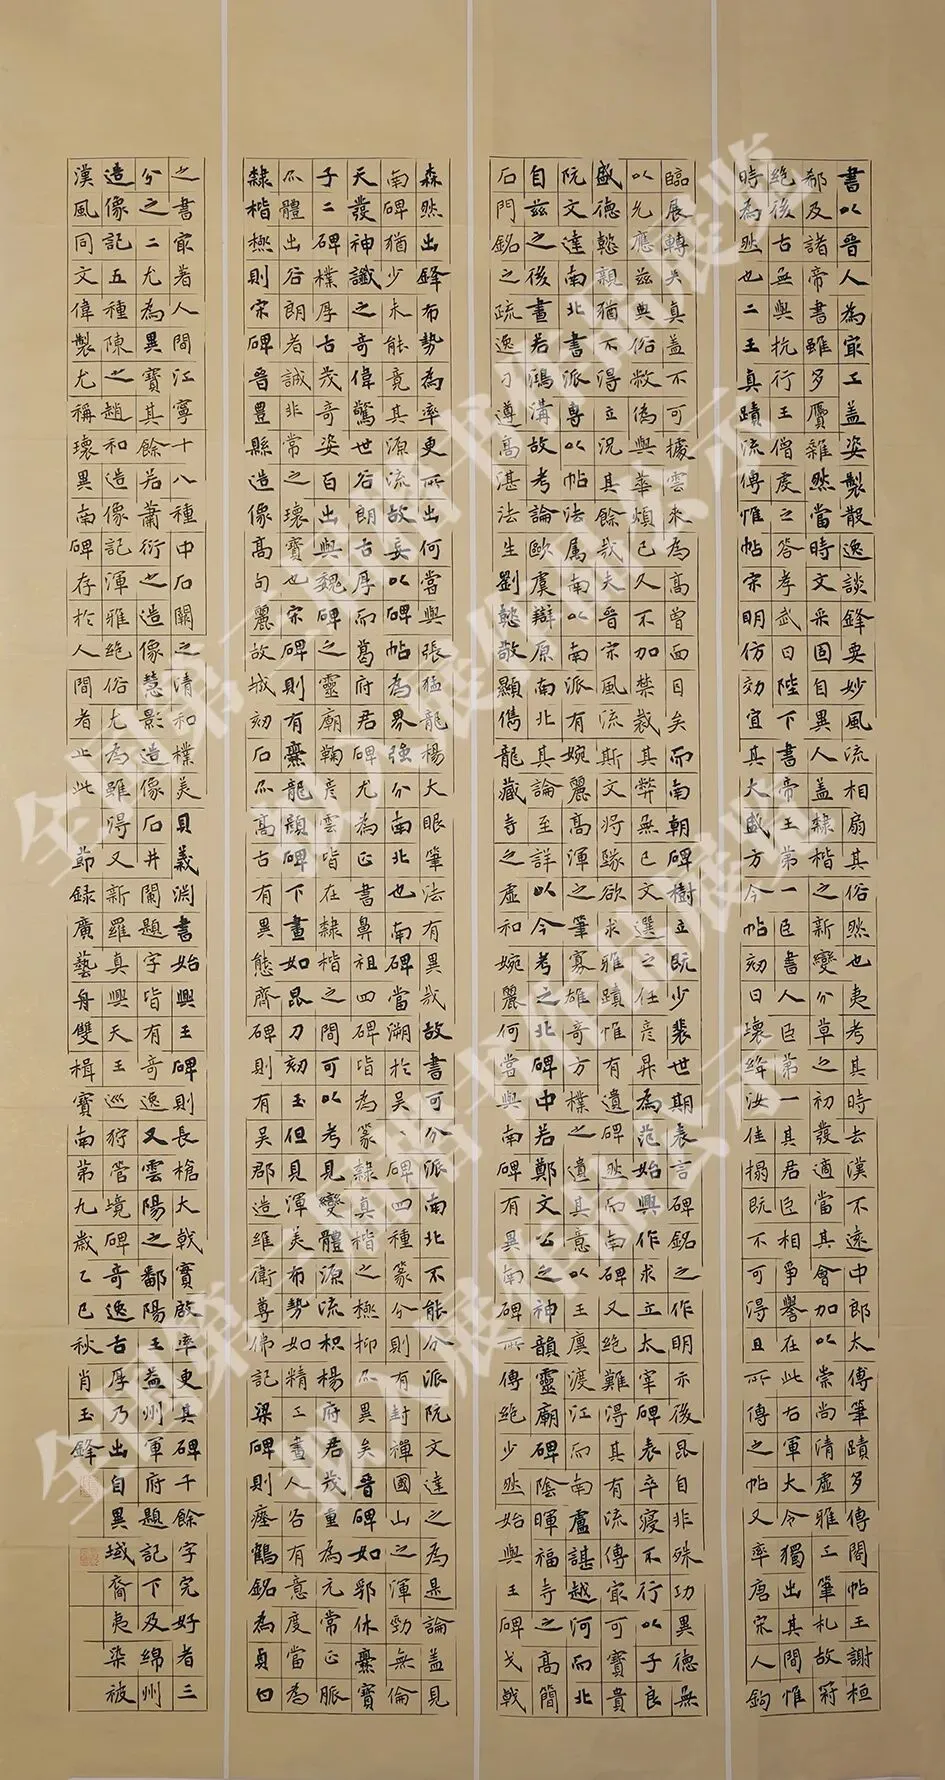 書以晉人為最工蓋姿製散逸談鋒要妙風流相扇其俗然也夷考其時去漢不遠中郎太傅筆蹟多傳閣帖王謝桓
郗及諸帝書雖多贗雜然當時文采固自異人蓋隸楷之新變分草之初發適當其會加以崇尚清虛雅工筆札故冠
絕後古無與抗行王僧虔之答孝武曰陛下書帝王第一臣書人臣第一其君臣相爭譽在此右軍大令獨出其間惟
時為然也二王真蹟流傳惟帖宋明仿効宜其大盛方今帖刻日壞絳汝佳搨既不可得且所傳之帖又率唐宋人鉤
臨展轉失真蓋不可據雲來為高曾面目矣而南朝碑樹立既少裴世期表言碑銘之作明示後昆自非殊功異德無
以允應茲典俗敝偽興華煩已久不加禁裁其弊無已文選之任彥昇為范始興作求立太宰碑表卒寢不行以子良
盛德懿親猶不得立況其餘哉夫晉宋風流斯文將墜欲求雅蹟惟有遺碑然而南碑又絕難得其有流傳最可寶貴
阮文達南北書派專以帖法属南以南派有婉麗高渾之筆寡雄奇方樸之遺其意以王廙渡江而南盧諶越河而北
自茲之後畫若鴻溝故考論歐虞辯原南北其論至詳以今考之北碑中若鄭文公之神韻靈廟碑陰暉福寺之高簡
石門銘之疏逸刁遵高湛法生劉懿敬顯儁龍藏寺之虛和婉麗何嘗與南碑有異南碑所傳絕少然始興王碑戈戟
森然出鋒布勢為率更所出何嘗與張猛龍楊大眼筆法有異哉故書可分派南北不能分派阮文達之為是論蓋見
南碑猶少未能竟其源流故妄以碑帖為界強分南北也南碑當溯於吳、碑四種篆分則有封禪國山之渾勁無倫
天發神讖之奇偉驚世谷朗古厚而葛府君碑尤為正書鼻祖四碑皆為篆隸真楷之極抑亦異矣晉碑如郛休爨寶
子二碑樸厚古茂奇姿百出與魏碑之靈廟鞠彥雲皆在隸楷之間可以考見變體源流枳楊府君茂重為元常正脈
亦體出谷朗者誠非常之瓌寶也宋碑則有爨龍顏碑下畫如昆刀刻玉但見渾美布勢如精工畫人谷有意度當為
隸楷極則宋碑晉豐縣造像高句麗故城刻石亦高古有異態齊碑則有吳郡造維衛尊佛記梁碑則瘞鶴銘為貞白
之書最著人間江寧十八種中石闕之清和樸美貝義淵書始興王碑則長槍大戟實啟率更其碑千餘字完好者三
分之二尤為異寶其餘若蕭衍之造像慧影造像石井闌題字皆有奇逸又雲陽之鄱陽王益州軍府題記下及綿州
造像記五種陳之趙和造像記渾雅絕俗尤為雖得又新羅真興天王巡狩管境碑奇逸古厚乃出自異域裔夷染被
漢風同文偉製尤稱瓌異南碑存於人間者止此 節録廣藝舟雙楫寶南第九歲乙巳秋肖玉鋒